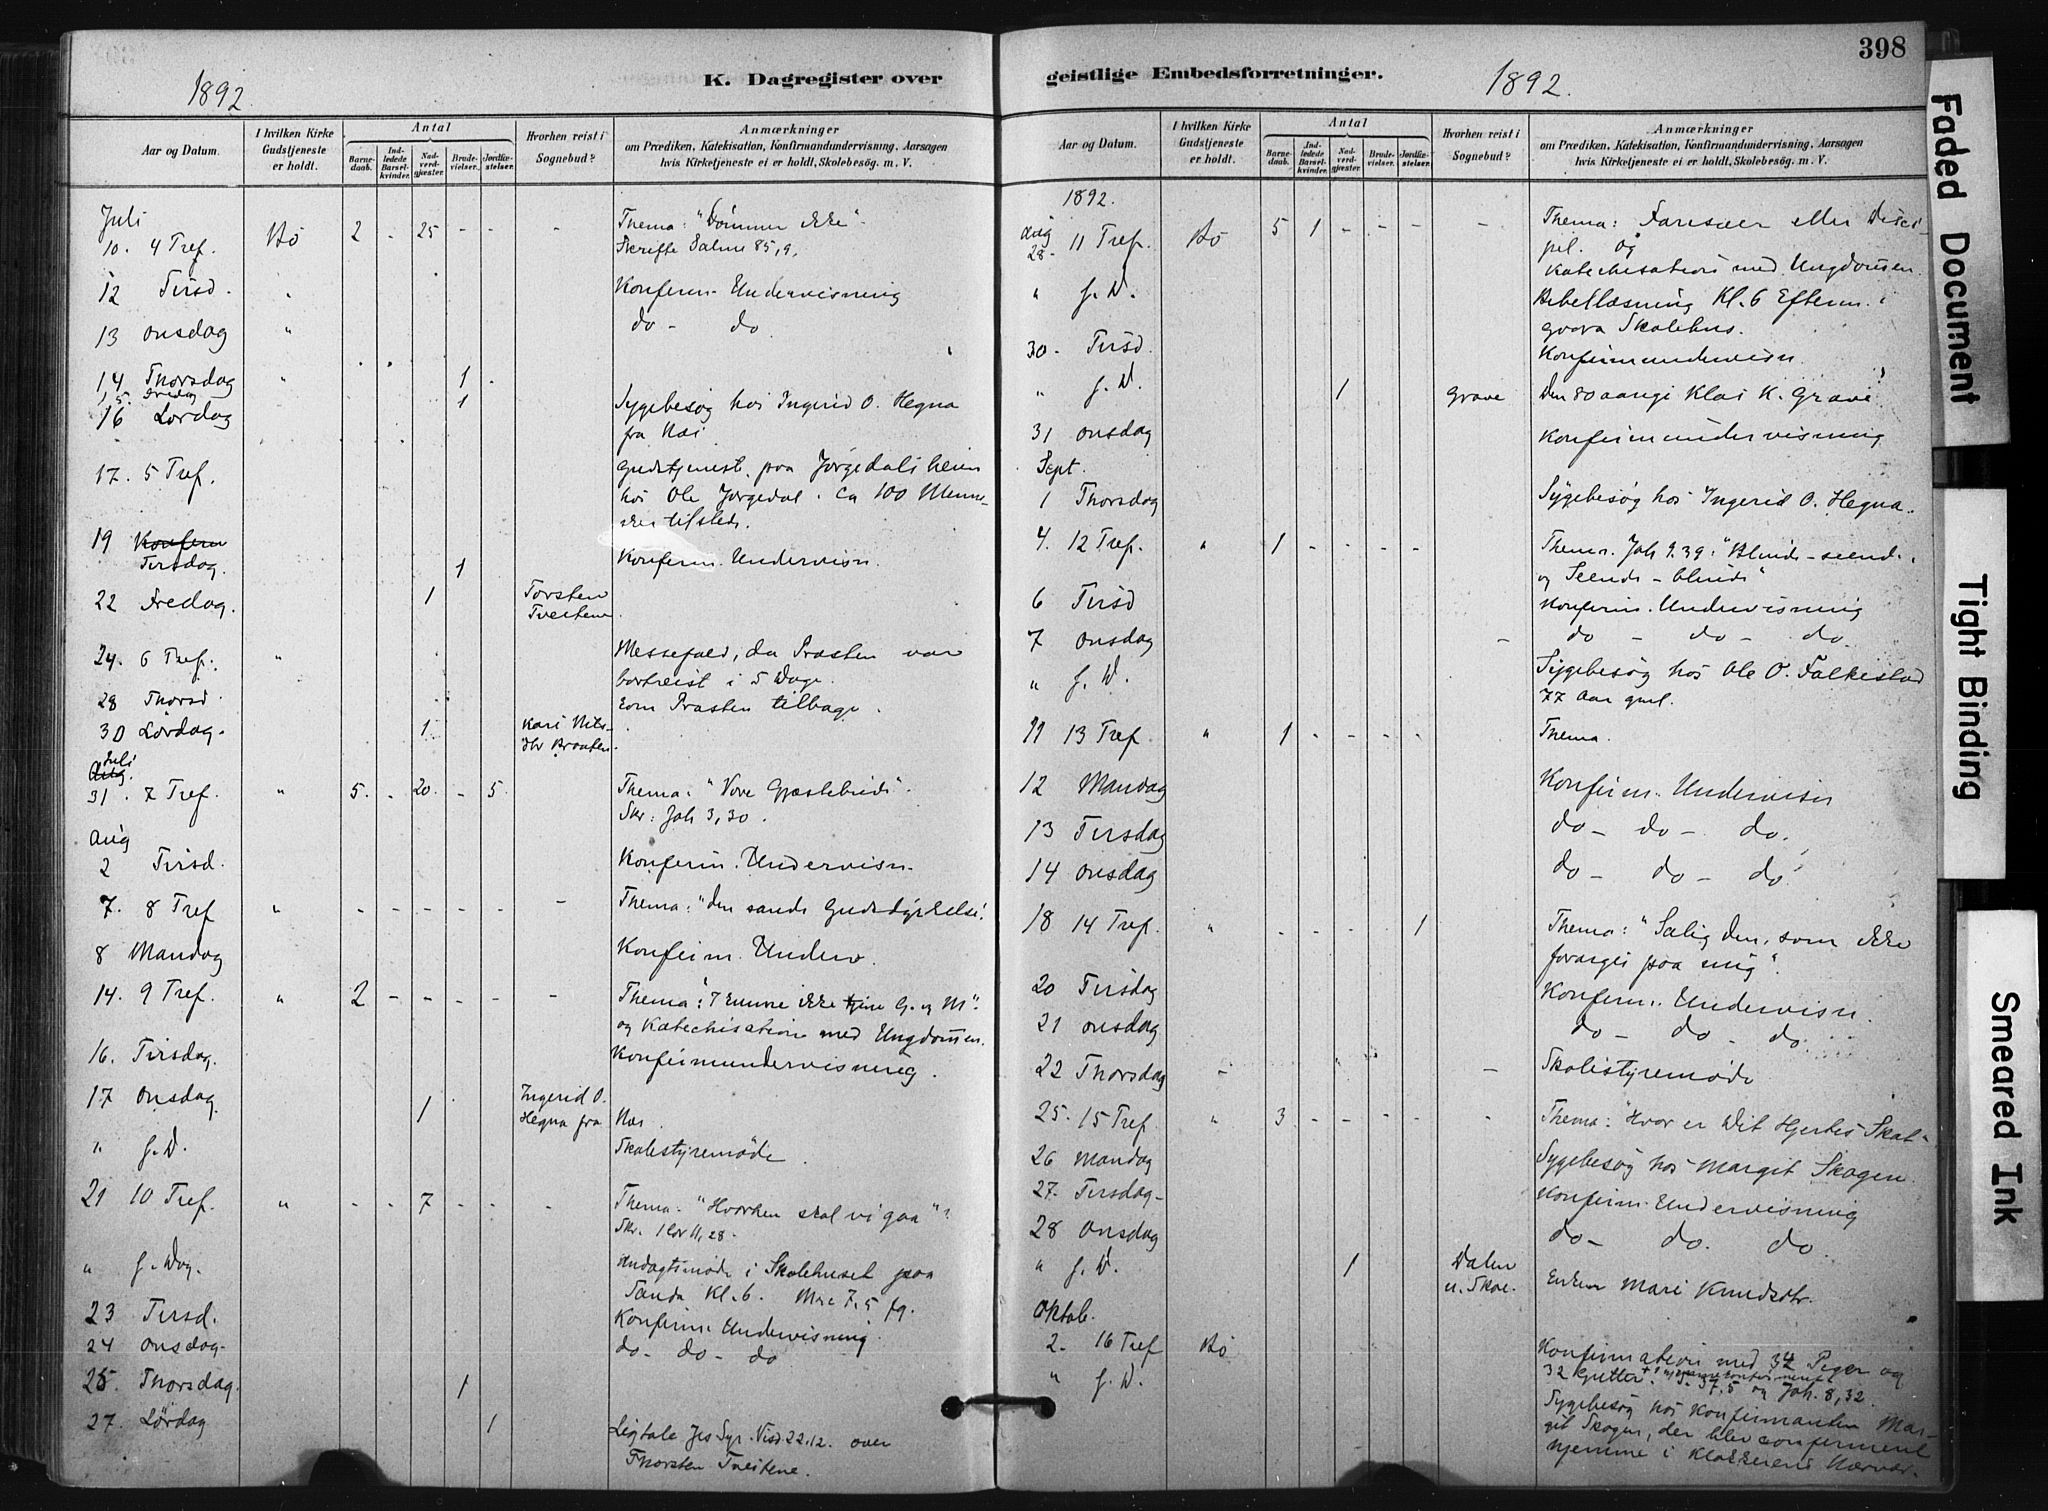 398
K. Dagregister over
geistlige Embedsforretninger.
1892
1892.
Aar og Datum.
I hvilken Kirke Gudstjeneste er holdt.
Antal
Barnedaab.
Indledede Barselkvinder.
Nadverdgjæster.
Brudevielser.
Jordfæstelser.
Hvorhen reist i Sognebud?
Anmærkninger
om Prædiken, Katekisation, Konfirmandundervisning, Aarsagen
hvis Kirketjeneste ei er holdt, Skolebesøg. m. V.
Juli
10. 4 Tref. Bö 2 - 25 - - - Thema: "Dömmer ikke"
Skrifte Salme 85,9.
12 Tirsd. " Konferm. Undervisning
13 onsdag " do - do
14 Thorsdag " 1
15. Fredag 1
16 Lördag Sygebesøg hos Ingerid O. Hegna
fra Næs
17. 5 Tref. Gudstjenest. paa Jørgedals heien
hos Ole Jørgedal. Ca 100 Menne-
sker tilstede.
19 Konferm
Tirsdag. 1 Konferm. Undervisn.
22 Fredag. 1 Torsten
Tveitene
24. 6 Tref. " Messefald, da Præsten var
bortreist i 5 Dage.
28 Thorsd. kom Præsten tilbage.
30 Lördag. 1 Kari Nils-
dtr Braaten.
Aug. Juli
31. 7 Tref. " 5. - 20. - 5 Thema: "Vore Gjæstebud".
Skr: Joh 3,30.
Aug
2 Tirsd. Konferm. Undervisn.
7. 8 Tref " - - - - - - Thema: "den sande Gudsdyrkelse".
8 Mandag Konfirm. Underv.
14. 9 Tref. " 2 - - - - - Thema: "Tjenne ikke G. og M"
og Katechisation med Ungdommen.
16. Tirsdag. Konfirmundervisning.
17 onsdag. 1 Ingerid O.
Hegna fra Næs.
" s. D. Skolestyremøde.
21 10 Tref. " - - 7 - - - Thema: "Hvorhen skal vi gaa"?
Skr. 1 Cor 11,28.
" s. Dag. Andagtsmøde i Skolehuset paa
Sanda Kl. 6. Mrc 7,5 fg.
23 Tirsd. Konfirm. Undervisning.
24 onsdag- do- do- do
25. Thorsdag. 1
27. Lördag 1 Ligtale Jes Syr. Visd 22.12. over
Thorsten Tveitene.
Aar og Datum.
I hvilken Kirke Gudstjeneste er holdt.
Antal
Barnedaab.
Indledede Barselkvinder.
Nadverdgjæster.
Brudevielser.
Jordfæstelser.
Hvorhen reist i Sognebud?
Anmærkninger
om Prædiken, Katekisation, Konfirmandundervisning, Aarsagen
hvis Kirketjeneste ei er holdt, Skolebesøg. m. V.
1892.
Aug
28- 11 Tref. Bö 5 1 - - - - Thema: Farisæer eller Disci-
pel. og
Katechisation med Ungdommen.
" s. D. Bibellæsning Kl. 6 Efterm. i
Skolehus.
30- Tirsd. Konfirmundervisn.
" s. D. 1 Grave Den 80 aarige Klas K. Grave.
31 onsdag Konfirmundervisning
Sept.
1 Thorsdag Sygebesøg hos Ingerid O. Hegna.
4. 12 Tref. " 1 - - - - Thema. Joh 9.39: "Blinde-seende
og Seende-blinde"
6 Tirsd Konferm. Undervisning
7 onsdag - do - do - do
" s. D. Sygebesøg hos Ole O. Falkestad
77 Aar gml.
11 13 Tref " 1 - - - - Thema.
12 Mandag Konferm. Undervisn
13 Tirsdag do- do- do.
14 onsdag do- do- do.
18 14 Tref. " - - - - 1 Thema: "Salig den, som ikke
forarges paa mig".
20 Tirsdag Konferm. Undervisn.
21 onsdag do- do- do
22 Thorsdag - - Skolestyremøde
25. 15 Tref. " 3 - - - - - Thema: "Hvor er Dit Hjertes Skat"
26 Mandag Sygebesøg hos Margit Skogen.
27. Tirsdag- Konferm. Undervisning
28 onsdag do- do. do.
" s. D. 1 Dalen
u. Skoe. Enken Mari Knudsdtr.
Oktob.
2. 16 Tref Bö Konfirmation med 34 Piger og
32 Gutter. 37,5 og Joh. 8,32.
" s. D. Sygebesøg hos Konfirmanten Mar-
git Skogen, der blev confirmeret
hjemme i Klokkerens Nærvær.
Faded Document
Tight Binding
Smeared Ink